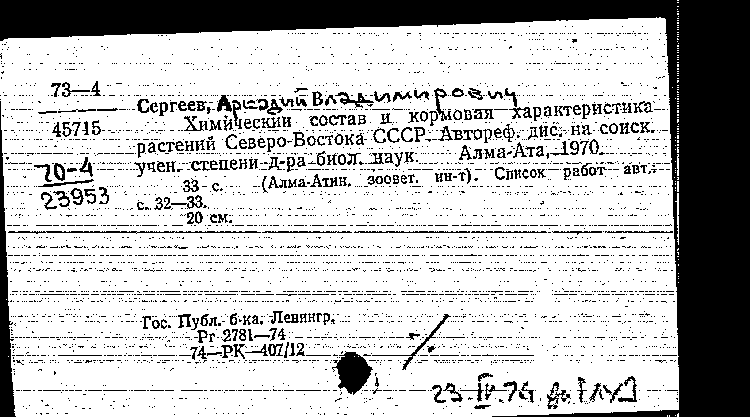 73—4
45715
70-4
23953
Сергеев, Аркадий Владимирович
Химический состав и кормовая характеристика
растений Северо-Востока СССР. Автореф. дис. на соиск.
учен. степени д-ра биол. наук. Алма-Ата, 1970.
33 с. (Алма-Атин. зоовет. ин-т). Список работ авт.:
с. 32—33.
20 см.
Гос. Публ. б-ка. Ленингр.
Рг 2781—74
74—РК—407/12
23.IV.74